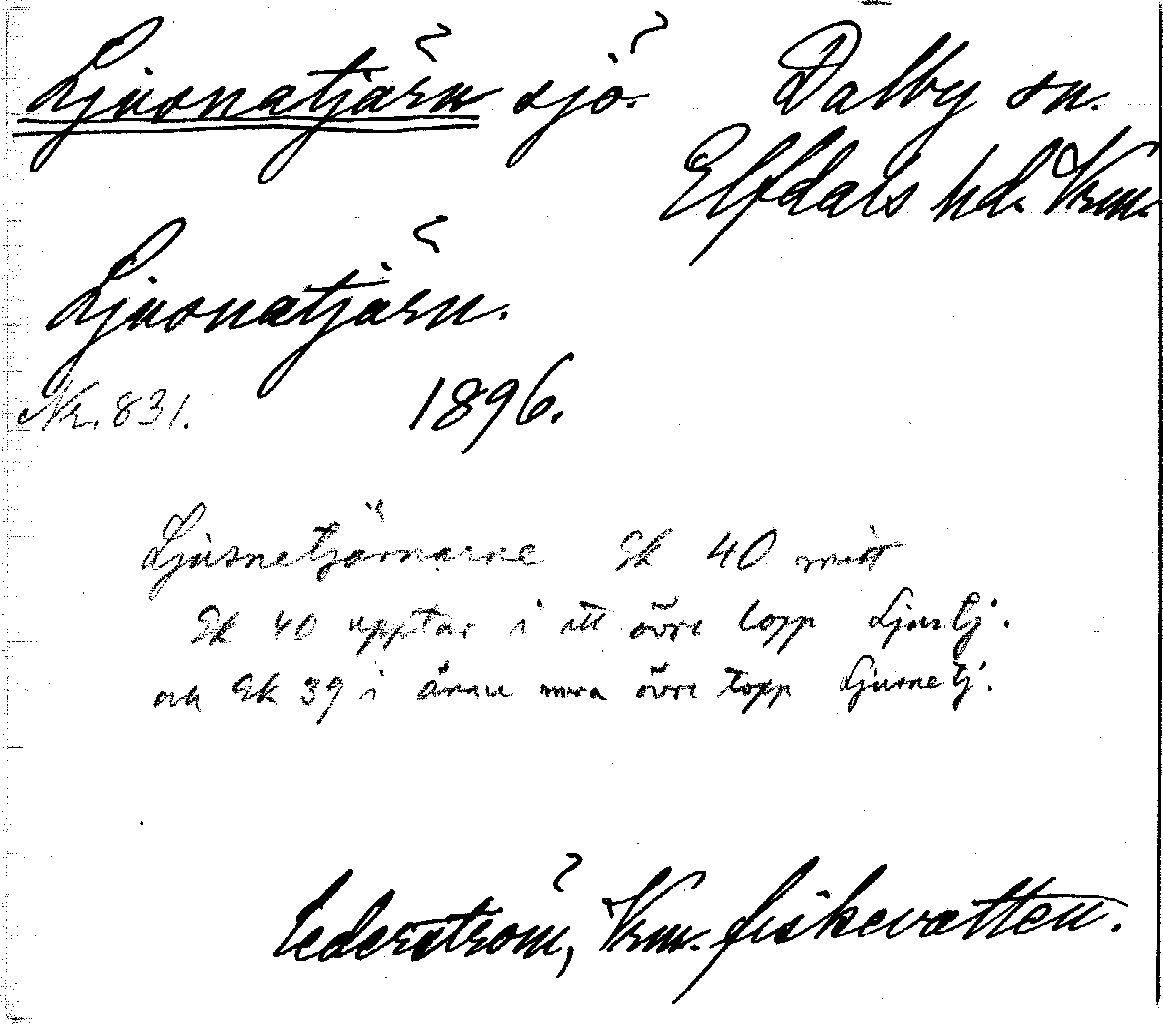 Ljusnatjärn sjö. Dalby sn.
Elfdals hd. Vrm.
Ljusnatjärn.
Nr. 831. 1896.
Ljusnetjärnarne Ek 40 mitt
Ek 40 upptar i ett övre lopp Ljustj.
och Ek 39 i ännu mera övre topp Ljusnetj.
Cederström, Vrm. fiskevatten.